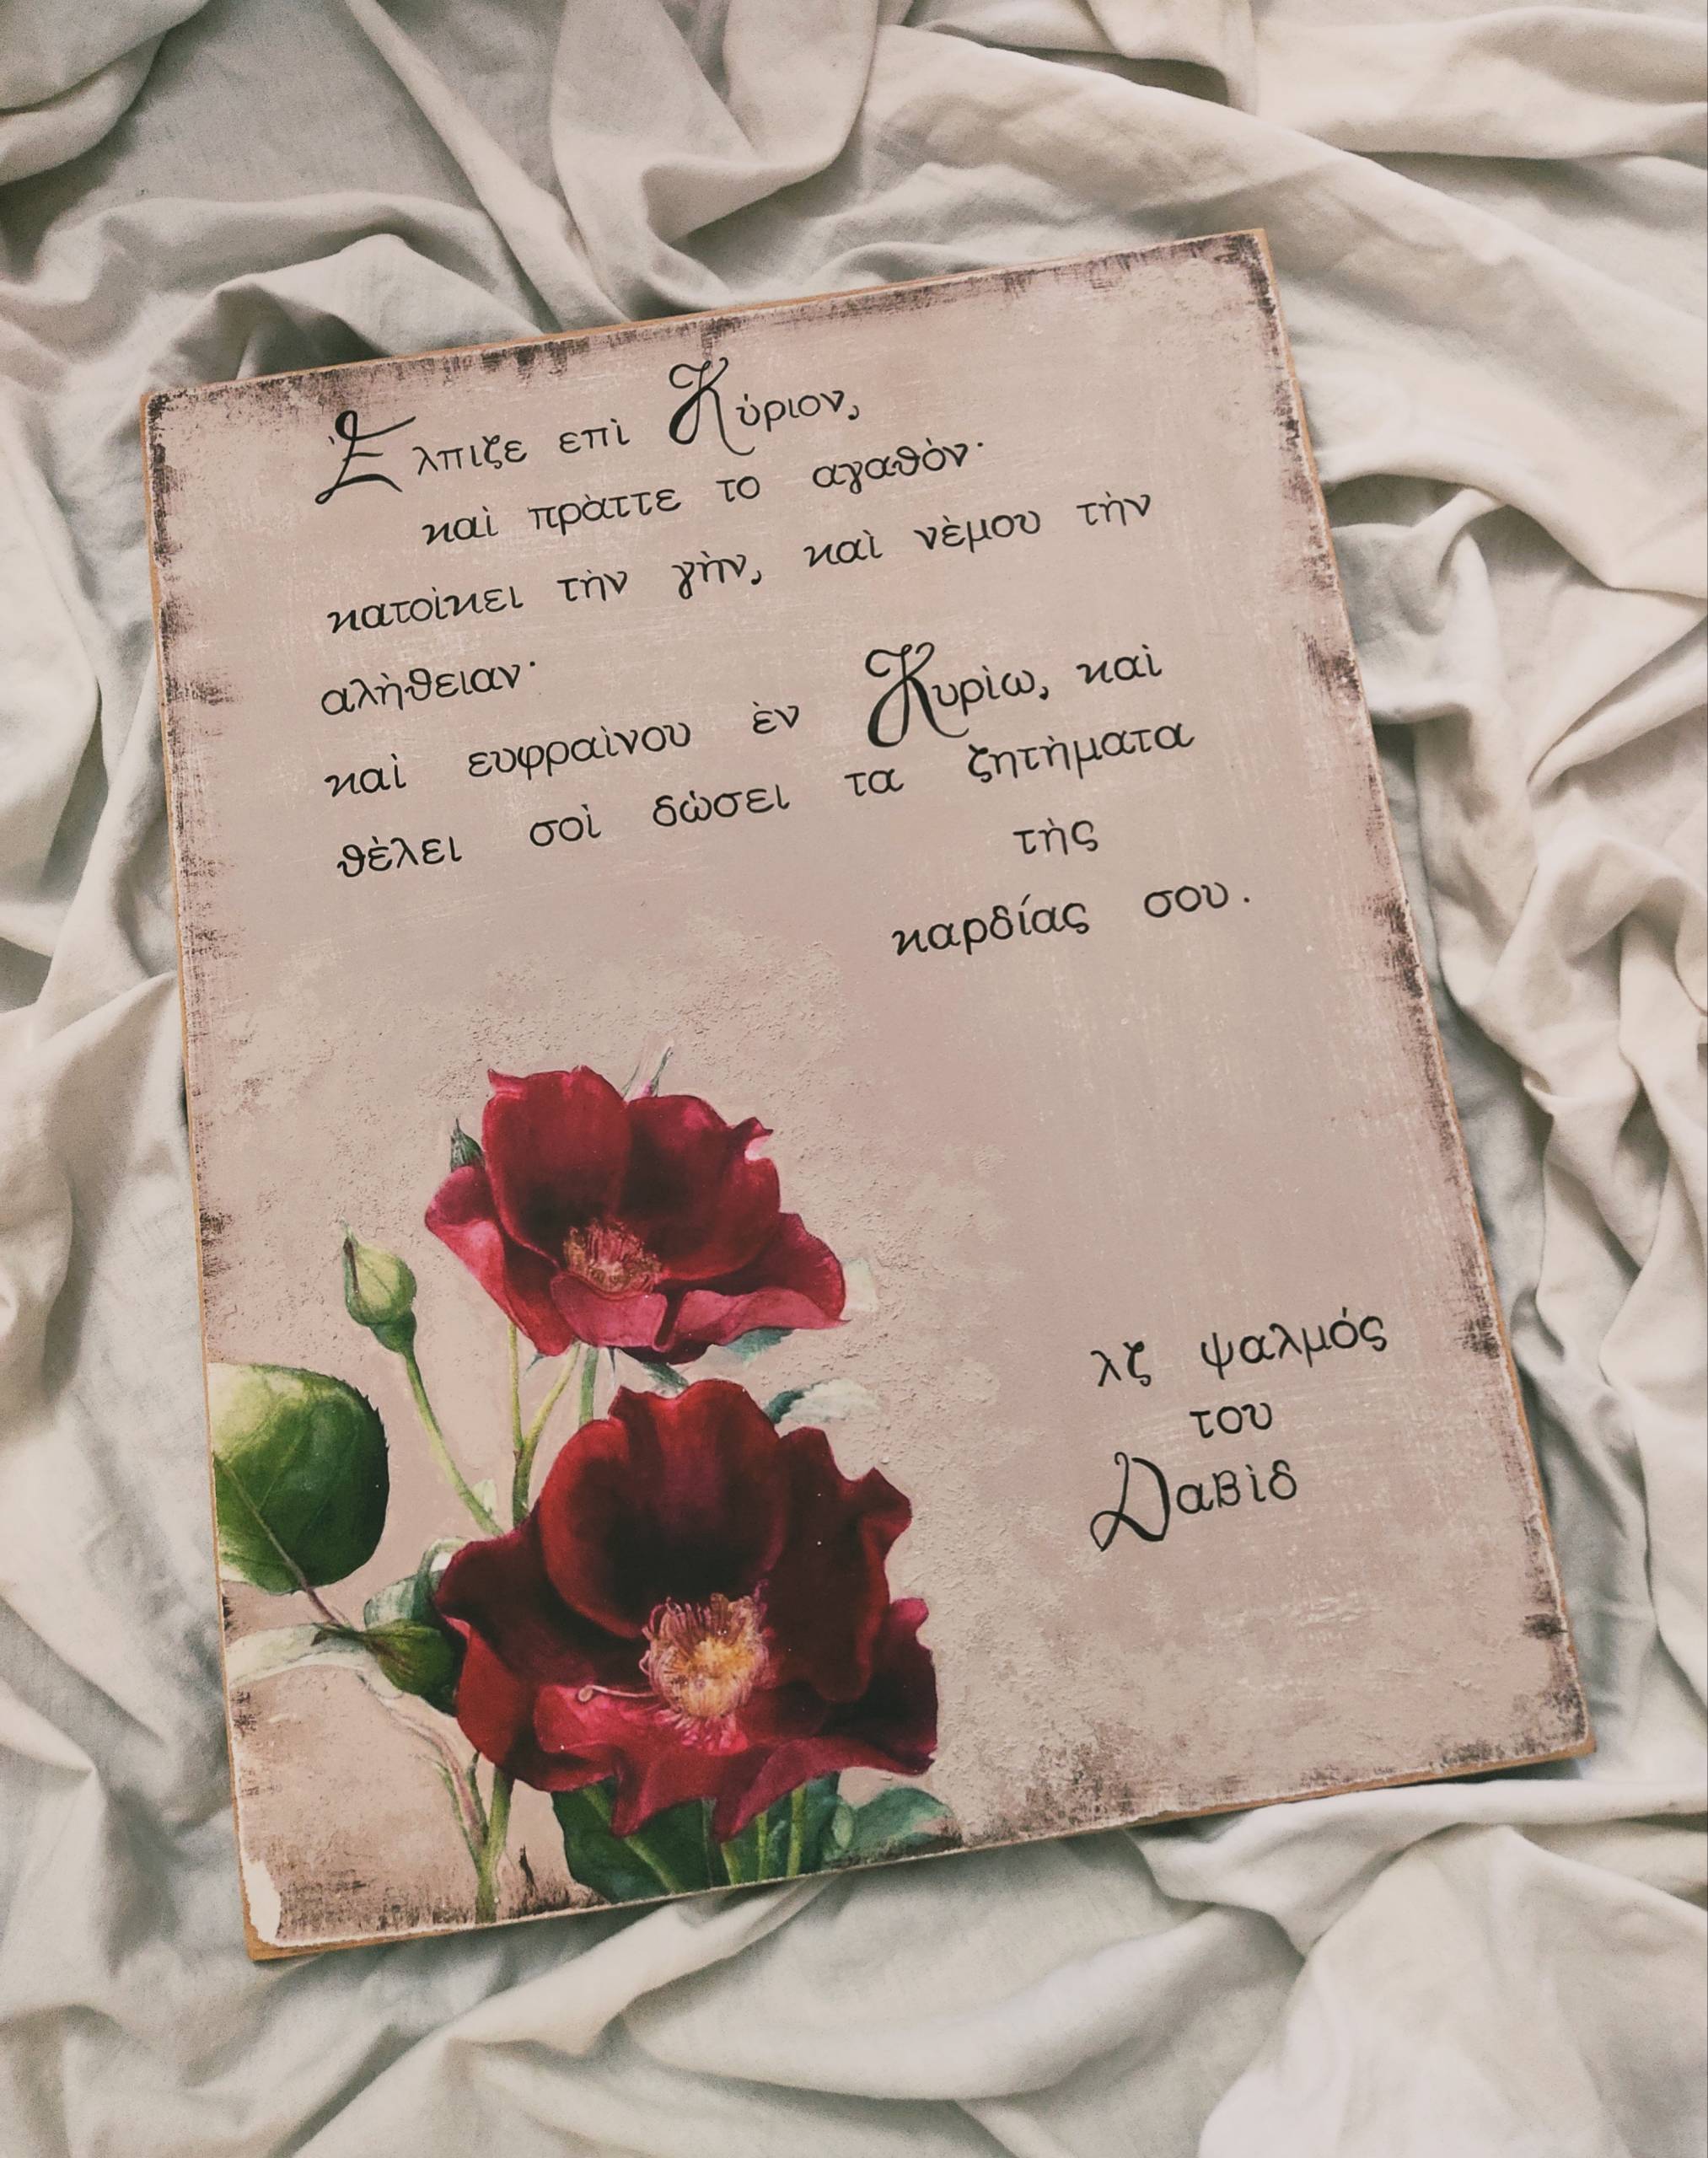 Έλπιζε επὶ Κύριον,
καὶ πρὰττε το αγαθὸν·
κατοὶκει τὴν γὴν, καὶ νὲμου τὴν
αλὴθειαν·
καὶ ευφραὶνου ὲν Κυρὶω, καὶ
θὲλει σοὶ δὼσει τα ζητὴματα
τὴς
καρδίας σου.
λζ ψαλμός
του
Δαβὶδ